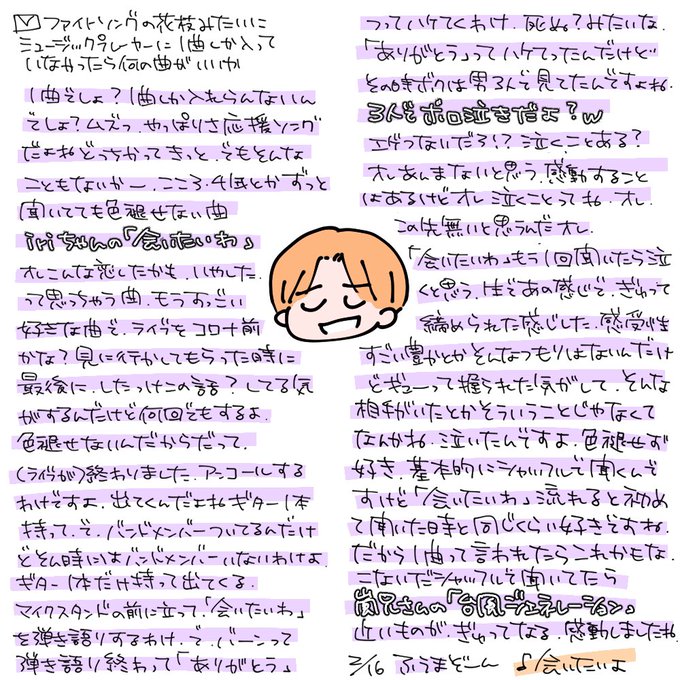 ファイトソングの花枝みたいに
ミュージックプレーヤーに1曲しか入って
いなかったら何の曲がいいか
1曲でしょ？1曲しか入れらんないん
でしょ？ムズっ.やっぱりさ応援ソング
だよねどっちかってきっと.でもそんな
こともないかー.ここ3.4年とかずっと
聞いてても色褪せない曲
iriちゃんの「会いたいわ」
オレこんな恋したかも.いやした.
って思っちゃう曲.もうすっごい
好きな曲で.ライヴをコロナ前
かな？見に行かしてもらった時に
最後に.したっけこの話？してる気
がするんだけど何回でもするよ.
色褪せないんだからだって.
(ライヴが)終わりました.アンコールする
わけですよ.出てくんだよねギター1本
持って.で.バンドメンバーついてるんだけ
どそん時にはバンドメンバーいないわけよ.
ギター1本だけ持って出てくる.
マイクスタンドの前に立って「会いたいわ」
を弾き語りするわけ.で.バーンって
弾き語り終わって「ありがとう」
つってハケてくわけ.死ぬ？みたいな.
「ありがとう」ってハケてったんだけど
その時ボクは男3人で見てたんですよね.
3人でボロ泣きだよ？w
エゲつないだろ!?泣くことある？
オレあんまないと思う.感動すること
はあるけどオレ泣くことってね.オレ.
この先無いと思うんだオレ.
「会いたいわ」もう1回聞いたら泣
くと思う.生であの感じで.ぎゅって
締められた感じした.感受性
すごい豊かとかそんなつもりはないんだけ
どギューって握られた気がして.そんな
相手がいたとかそういうことじゃなくて
なんかね.泣いたんですよ.色褪せず
好き.基本的にシャッフルで聞くんで
すけど「会いたいわ」流れると初め
て聞いた時と同じくらい好きですね.
だから1曲って言われたらこれかもな.
こないだシャッフルで聞いてたら
嵐兄さんの「台風ジェネレーション」
近いものが.ぎゅってなる.感動しましたね.
2/16 ふうまどーん ♪会いたいよ